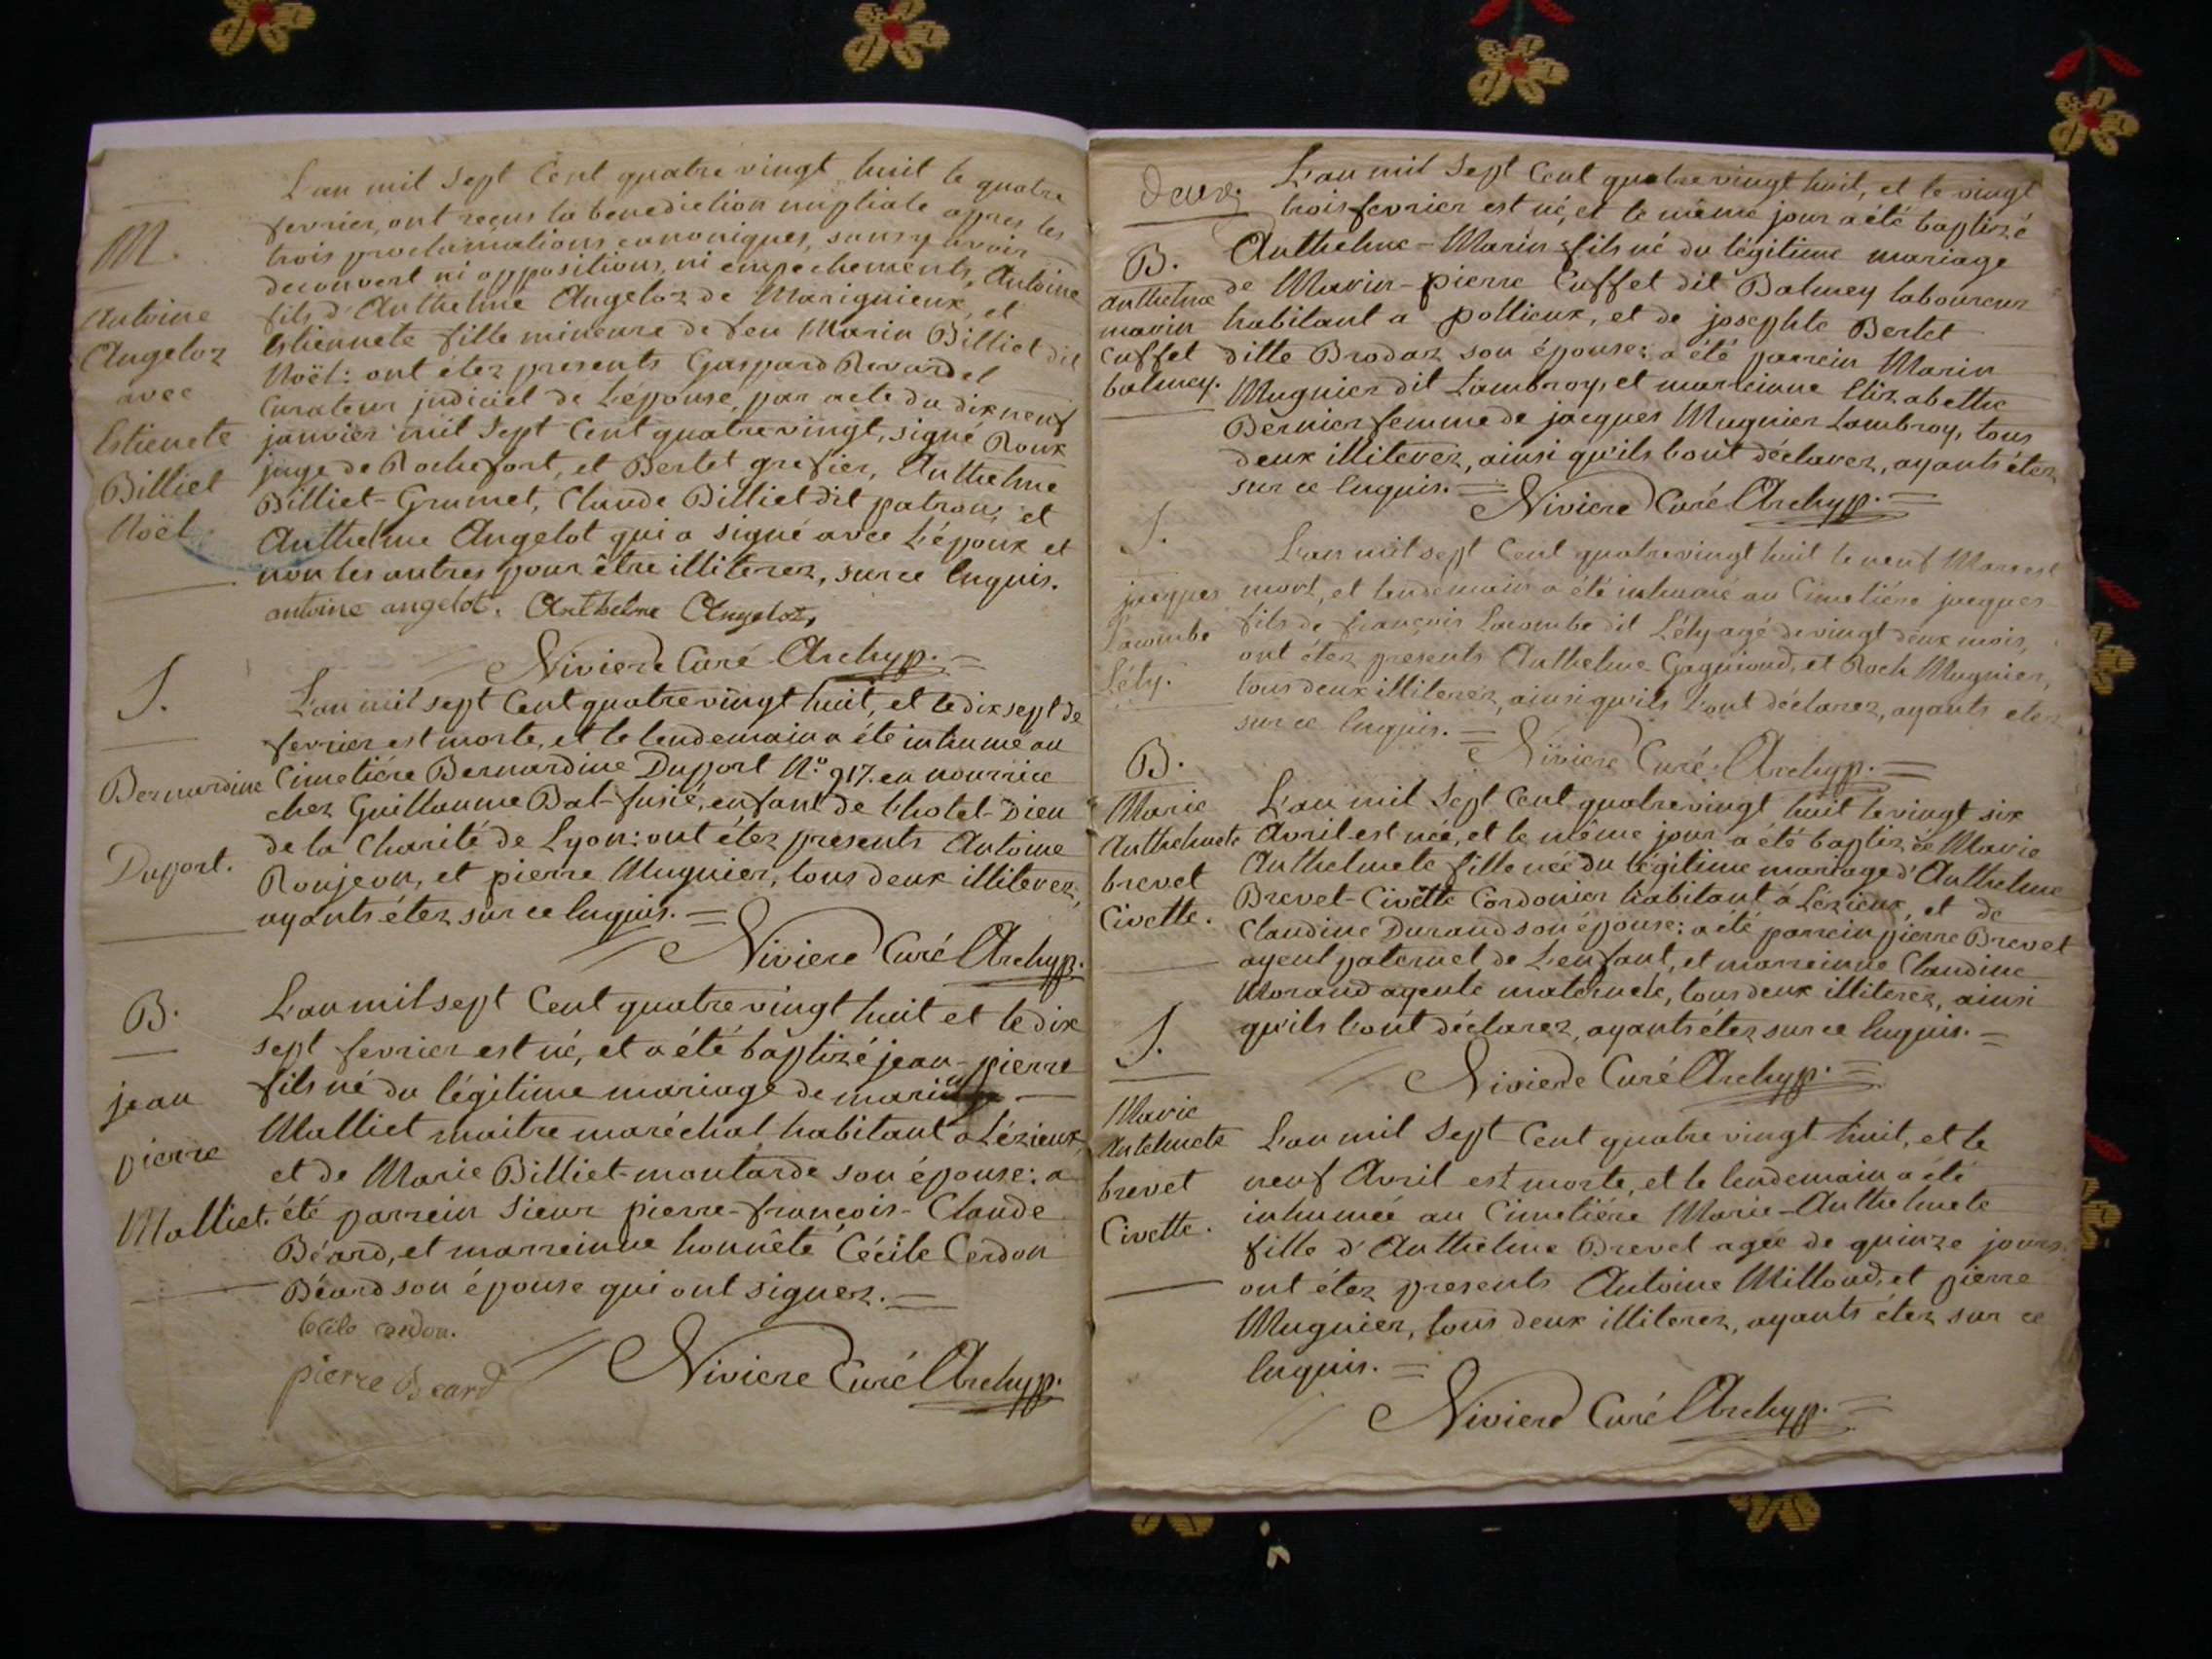 L'an mil sept Cent quatre vingt huit le quatre
fevrier, ont reçus la benediction nuptiale apres les
trois proclamations canoniques, sans y avoir
decouvert ni oppositions, ni empechements, Antoine
fils d'Anthelme Angeloz de Marignieux, et
Estiennete fille mineure de feu Marin Billiet dit
Noël: ont étez presents Gaspard Revardel
Curateur judiciel de L'épouse, par acte du dix neuf
janvier mil Sept Cent quatre vingt, signé Roux
juge de Rochefort, et Bertet grefier, Anthelme
Billiet-Grumet, Claude Billiet dit patron, et
Anthelme Angelot qui a signé avec L'époux et
non les autres pour être illiterez, sur ce Enquis.
antoine angelot. Anthelme Angeloz,
Niviere Curé Archyp.
M.
Antoine
Angeloz
avec
Estienete
Billiet
Noël
L'an mil sept Cent quatre vingt huit, et le dix sept de
fevrier est morte, et le lendemain a été inhumé au
Cimetiére Bernardine Duport N.º 917. en nourrice
chez Guillaume Bal-fusié, enfant de l'hotel-Dieu
de la Charité de Lyon: ont étez presents Antoine
Roujeon, et pierre Mugnier, tous deux illiterez,
ayants étez sur ce Enquis. =
Niviere Curé Archyp.
S.
Bernardine
Duport.
L'an mil sept Cent quatre vingt huit et le dix
sept fevrier est né, et a été baptizé jean-pierre
fils né du légitime mariage de marin
Malliet maitre maréchal habitant a Lézieux,
et de Marie Billiet-moutarde son épouse: a
été parrein Sieur pierre-françois-Claude
Béard, et marreinne honnête Cécile Cerdon
Béard son épouse qui ont signez. =
Cécile cerdon.
pierre Beard
Niviere Curé Archyp.
B.
jean
pierre
Malliet.
deux.
L'an mil Sept Cent quatre vingt huit, et le vingt
trois fevrier est né, et le même jour a été baptizé
Anthelme-Marin fils né du légitime mariage
de Marin-pierre Cuffet dit Balmey laboureur
habitant a pollieux, et de josephte Bertet
ditte Brodaz son épouse: a été parrein Marin
Mugnier dit Lambroy, et marreinne Elizabethe
Bernier femme de jacques Mugnier Lambroy, tous
deux illiterez, ainsi qu'ils l'ont déclarez, ayants étez
sur ce Enquis. =
Niviere Curé Archyp. =
B.
anthelme
marin
Cuffet
balmey.
L'an mil sept Cent quatre vingt huit le neuf Mars est
mort, et lendemain a été inhumé au Cimetiére jacques
fils de françois Lacombe dit Léty agé de vingt deux mois,
ont étez presents Anthelme Gagnioud, et Roch Mugnier,
tous deux illiterez, ainsi qu'ils l'ont déclarez, ayants etez
sur ce Enquis. =
Niviere Curé Archyp. =
S.
jacques
Lacombe
Léty.
L'an mil Sept Cent quatre vingt huit le vingt six
Avril est née, et le même jour a été baptizée Marie
Anthelmete fille née du légitime mariage d'Anthelme
Brevet-Civette Cordonier habitant á Lézieux, et de
Claudine Durand son épouse: a été parrein pierre Brevet
ayeul paternel de L'enfant, et marreinne Claudine
Morand ayeule maternele, tous deux illiterez, ainsi
qu'ils l'ont déclarez, ayants étez sur ce Enquis. =
Niviere Curé Archyp. =
B.
Marie
Anthelmete
brevet
Civette.
L'an mil Sept Cent quatre vingt huit, et le
neuf Avril est morte, et le lendemain a été
inhumée au Cimetiére Marie-Anthelmete
fille d'Anthelme Brevet agée de quinze jours.
ont étez presents Antoine Milloud, et pierre
Mugnier, tous deux illiterez, ayants étez sur ce
Enquis. =
Niviere Curé Archyp. =
S.
Marie
Antelmete
brevet
Civette.